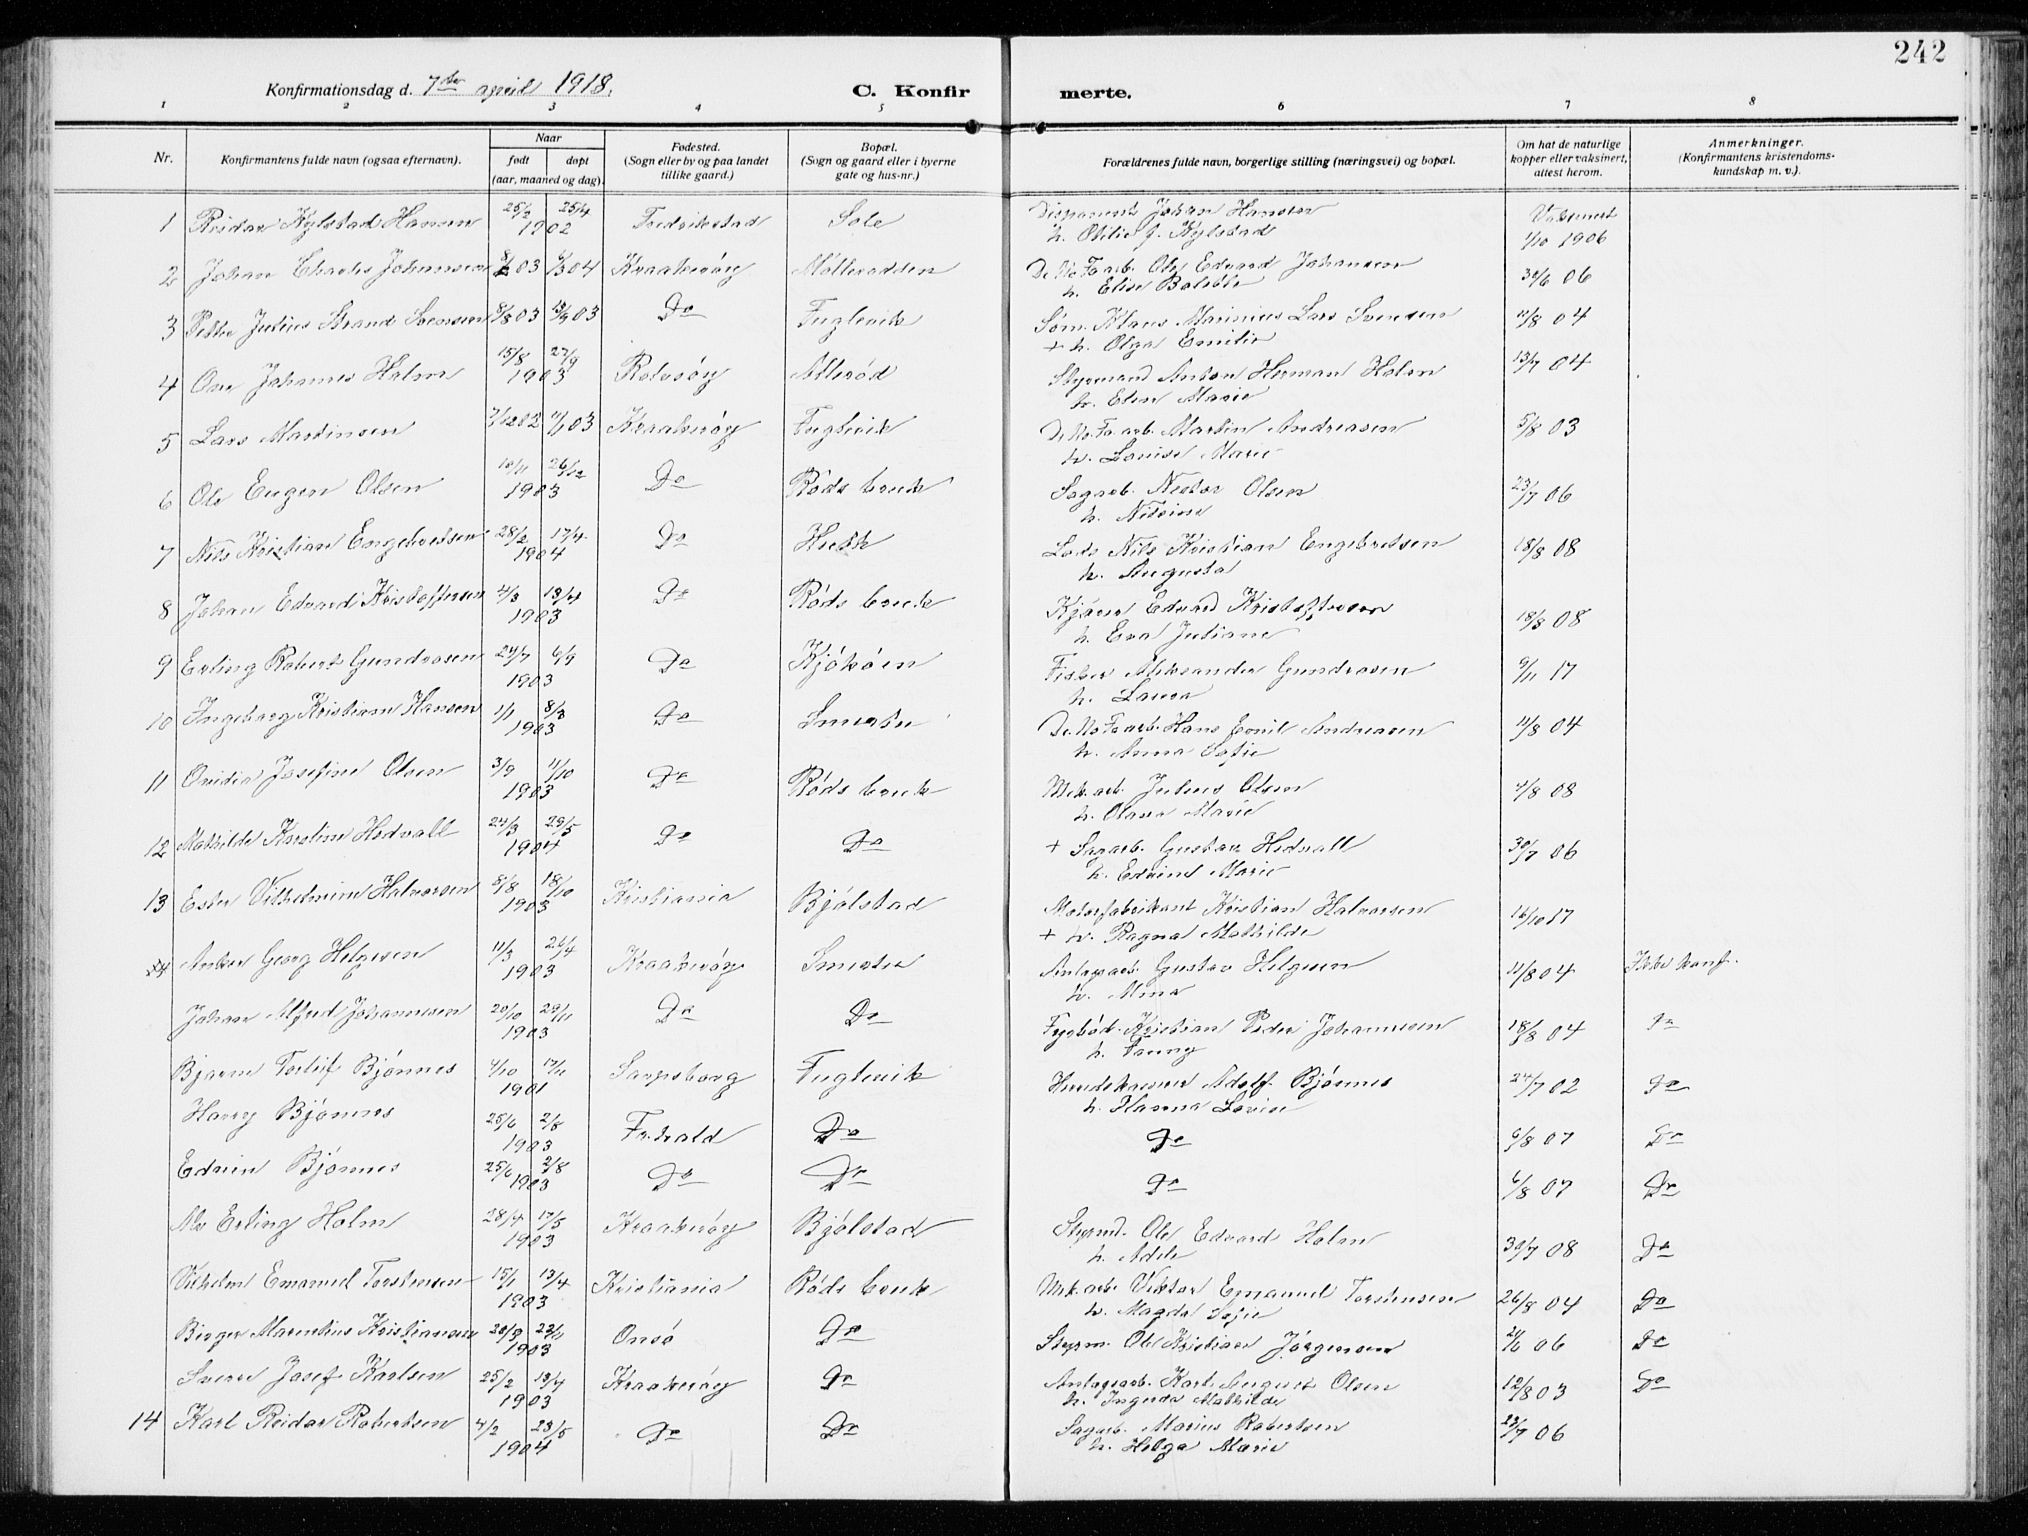 242
Konfirmationsdag d. 7de april 1918.
C. Konfir merte.
1 2 3 4 5 6 7 8
Nr.
Konfirmantens fulde navn (ogsaa efternavn).
Naar
født døpt
(aar, maaned og dag).
Fødested.
(Sogn eller by og paa landet
tillike gaard.)
Bopæl.
(Sogn og gaard eller i byerne
gate og hus-nr.)
Forældrenes fulde navn, borgerlige stilling (næringsvei) og bopæl.
Om hat de naturlige
kopper eller vaksinert,
attest herom.
Anmerkninger.
(Konfirmantens kristendoms-
kundskap m. v.).
1 Reidar Kylstad Hansen 25/2 25/4 Fredrikstad Sole Disponent Johan Hansen Vaksinert
1902 h. Otilie f. Kylstad 1/10 1906
2 Johan Charles Johansen 03 04 Kraakerøy Møllerodden Ole Edvard Johansen 30/6 06
h. Elise
3 Petter Julius Strand Svensen 8/8 03 13/9 03 Do Fuglevik Søm. Klaus Marinius Lars Svensen 11/8 04
+ h. Olga Emilie
4 Ove Johannes Holm 15/8 27/9 Rolvsøy Allerød Styrmand Anton Herman Holm 13/7 04
1903 h. Elen Marie
5 Lars Martinsen 7/12 02 11/1 03 Kraakerøy Fuglevik De No. Fa. arb. Martin Andreasen 5/8 03
h. Louise Marie
6 Ole Eugen Olsen 10/11 26/12 Do Røds bruk Sagarb. Nestor Olsen 23/7 06
1903 h.
7 Nils Kristian Engebretsen 28/2 17/4 Do Huth Lods Nils Kristian Engebretsen 18/8 08
1904 h. Augusta
8 Johan Edvard Kristoffersen 4/3 13/4 Do Røds bruk Kjører Edvard Kristoffersen 18/8 08
1903 h. Eva Juliane
9 Erling Robert Gundrosen 24/7 6/9 Do Kjøkøen Fisker Aleksander Gundrosen 9/11 17
1903 h. Laura
10 Ingeborg Kristiane Hansen 1/1 8/3 Do Smertu De. No. Fa. arb. Hans Emil Andreasen 11/8 04
1903 h. Anna Sofie
11 Ovidia Josefine Olsen 3/9 11/10 Do Røds bruk Mek. arb. Julius Olsen 4/8 08
1903 h. Olava Marie
12 Mathilde Karoline Hedvall 24/3 29/5 Do Do + Sagarb. Gustav Hedvall 30/7 06
1904 h. Edvine Marie
13 Ester Vilhelmine Halvorsen 8/8 18/10 Kristiania Bjølstad Motorfabrikant Kristian Halvorsen 16/10 17
1903 + h. Ragna Mathilde
14 Anker Georg Helgesen 11/3 26/4 Kraakerøy Smertu Anlægsarb. Gustav Helgesen 11/8 04 Ikke konf.
1903 h. Mina
Johan Alfred Johannesen 20/10 29/11 Do Do Fyrbød. Kristian Peder Johannesen 18/8 04 Do
1903 h. Fanny
Bjarne Torleif Bjønnes 4/10 17/11 Sarpsborg Fuglevik Adolf Bjønnes 24/7 02 Do
1901 h. Hanna Lovise
Harry Bjønnes 25/6 2/8 Do Do 6/8 07 Do
1903
Edvin Bjønnes 25/6 2/8 Do Do Do 6/8 07 Do
1903
Alv Erling Holm 28/4 17/5 Kraakerøy Bjølstad Styrmd. Ole Edvard Holm 30/7 08 Do
1903 h. Adele
Vilhelm Emanuel Torstensen 15/1 13/4 Kristiania Røds bruk Mek. arb. Viktor Emanuel Torstensen 26/8 04 Do
1903 h. Magda Sofie
Birger Marentius Kristiansen 20/9 22/11 Onsø Do Styrm. Ole Kristian Jørgensen 06 Do
1903
Sverre Josef Karlsen 25/2 13/4 Kraakerøy Do Anlægsarb. Karl August Olsen 12/8 03 Do
1903 h. Ingerda Mathilde
14 Karl Reidar Robertsen 4/2 23/5 Do Do Sagarb. Marius Robertsen 23/7 06
1904 h. Helga Marie